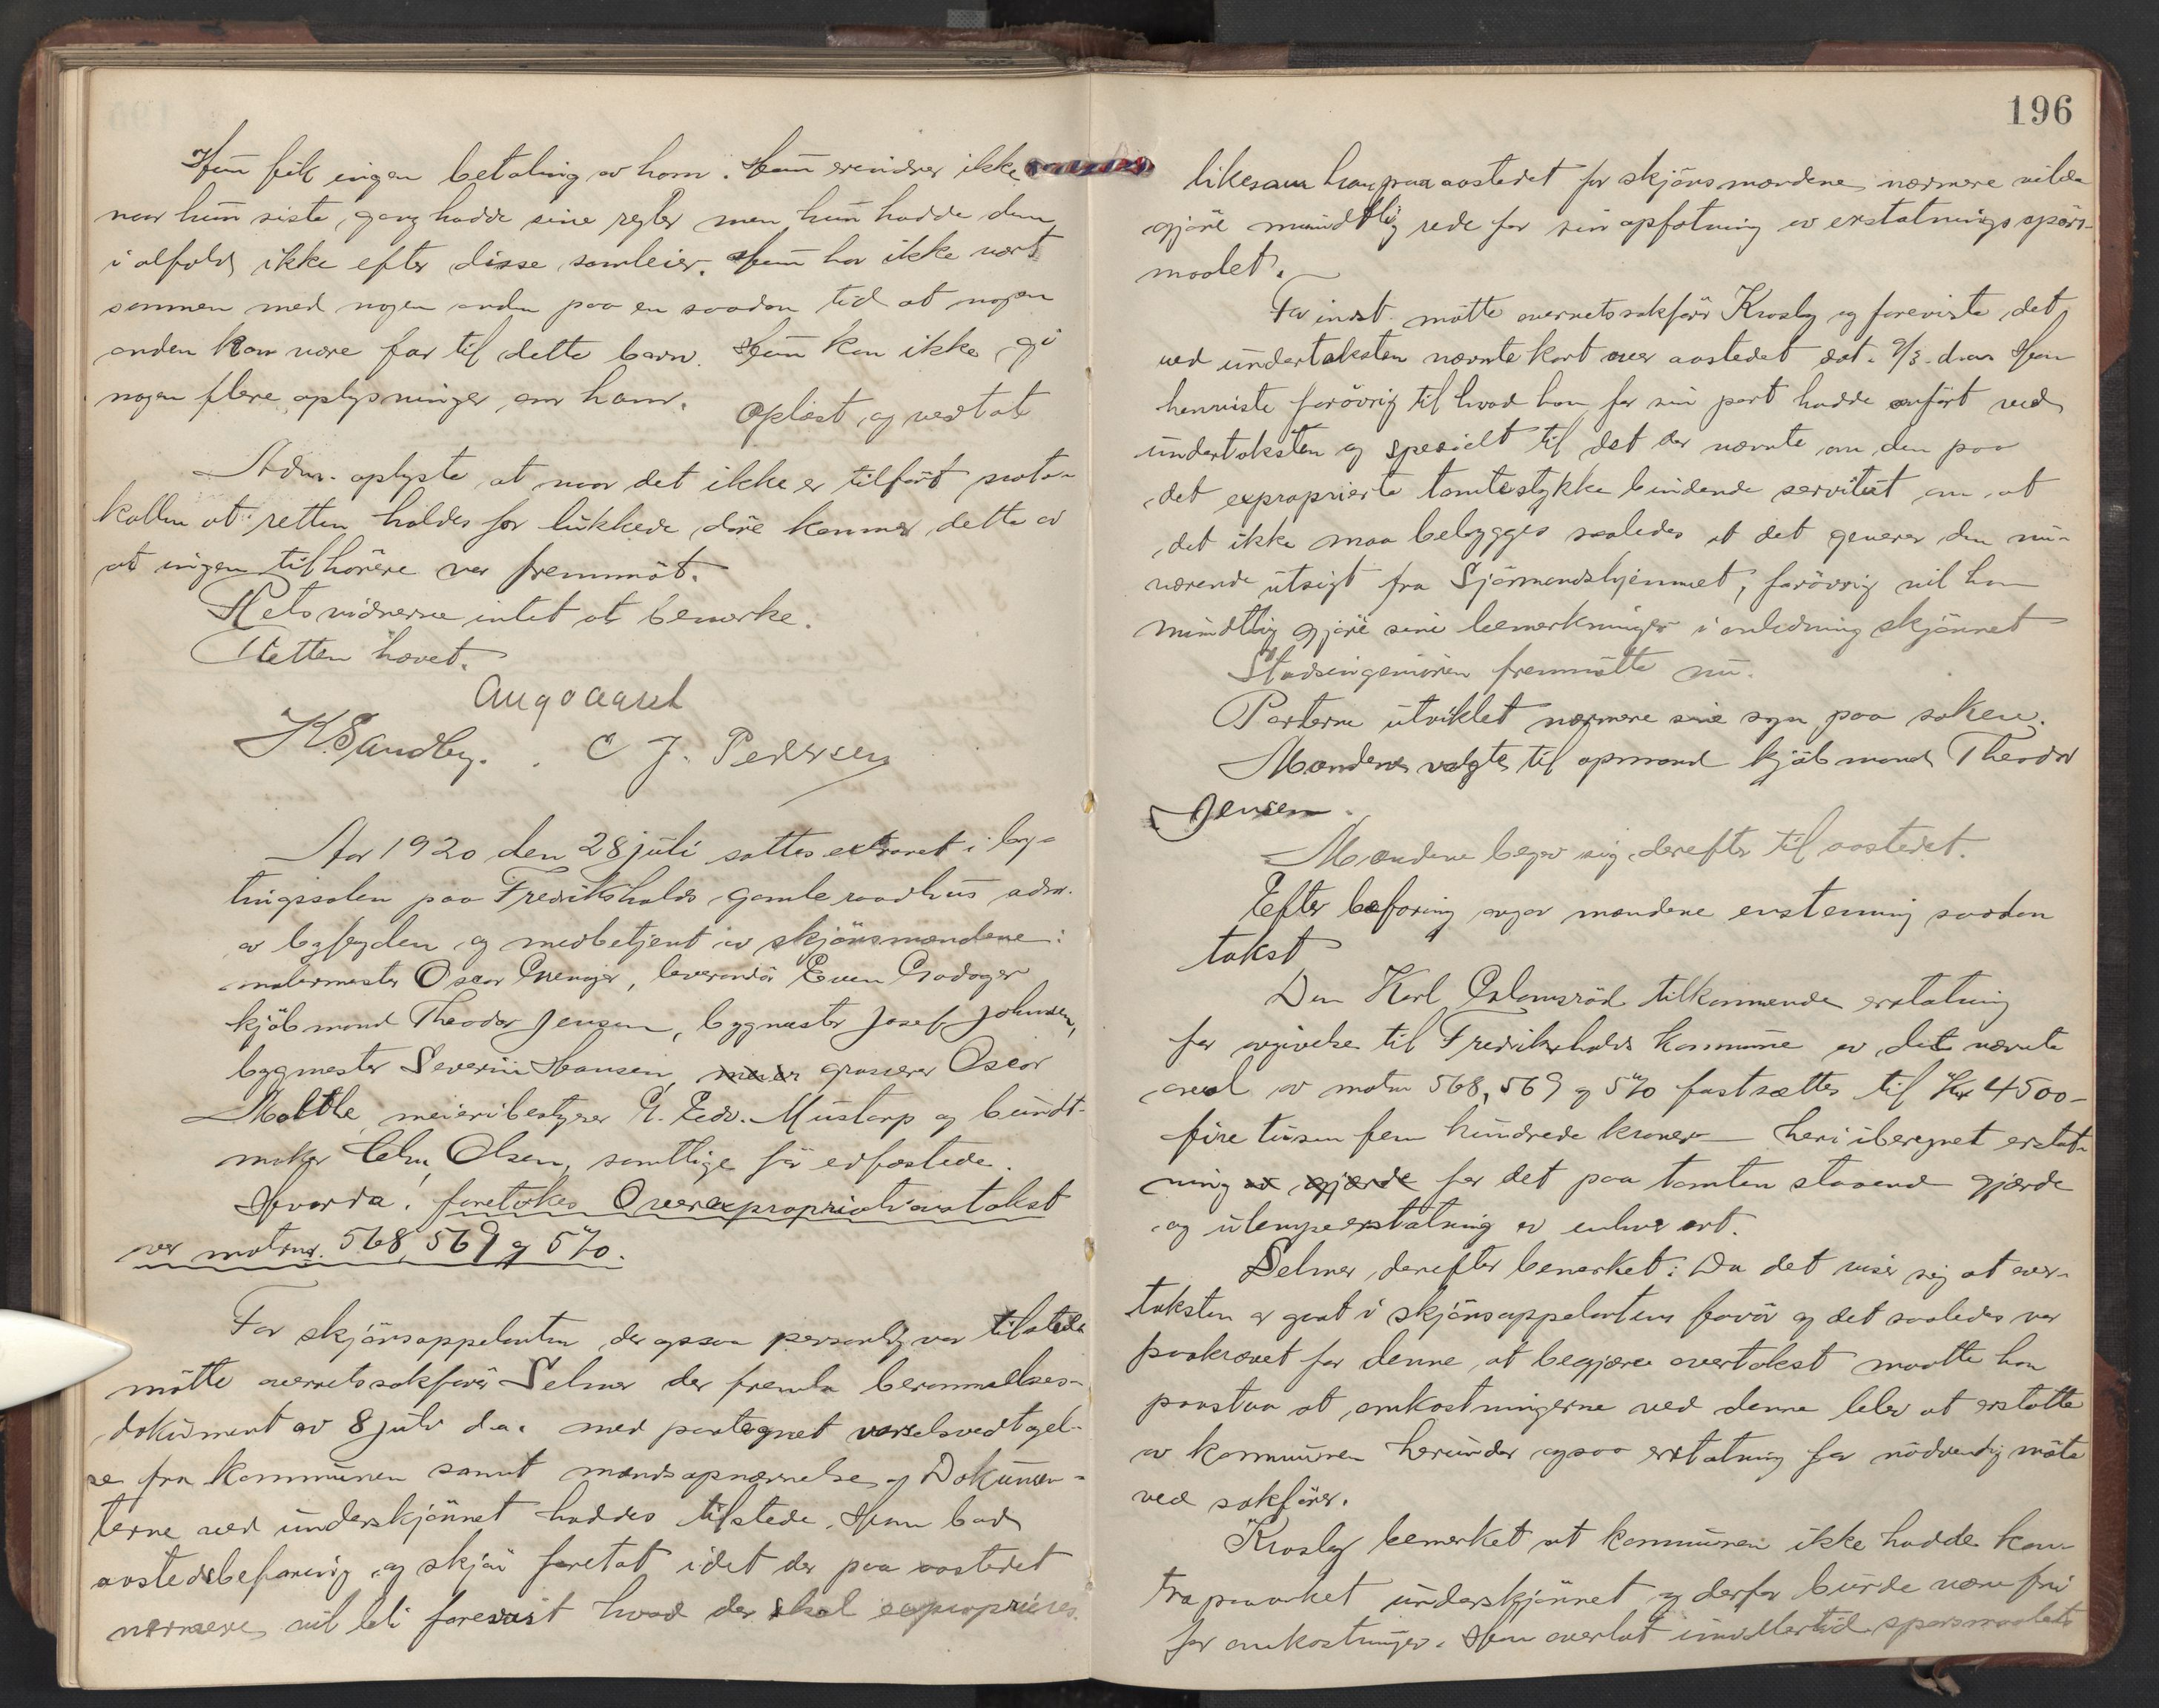 Hun fik ingen betaling av ham. Hun erindrer ikke
naar hun siste gang hadde sine regler men hun hadde dem
i alfald ikke efter disse samleier. Hun har ikke vært
sammen med nogen anden paa en saadan tid at nogen
anden kan være far til dette barn. Hun kan ikke gi
nogen flere oplysninger om ham. Oplæst og vedtat
Adm. oplyste at naar det ikke er tilført proto-
kollen at retten holdes for lukkede døre kommer dette av
at ingen tilhørere var fremmøt.
Retsvidnerne intet at bemerke.
Retten hævet.
Augaaret
K Sandby. C J. Pedersen
Aar 1920 den 28 juli sattes extraret i by-
tingssalen paa Fredrikshalds gamle raadhus adm.
av byfogden og medbetjent av skjønsmændene:
malermester Oscar Grenager, leverandør Even
kjøbmand Theodor Jensen, bygmester Josef Johnsen,
bygmester Severin Hansen, grosserer Oscar
Molthe, meieribestyrer P. Edv. Mustorp og bundt-
maker Olsen, samtlige før edfæstede.
Hvorda: foretokes Overexpropriationstakst
over matrnr. 568, 569 og 570.
For skjønsappelanten der ogsaa personlig var tilstede
møtte overretssakfører Selmer der fremla berammelses-
dokument av 8 juli d.a. med paategnet varselsvedtagel-
se fra kommunen samt mandsopnævnelse og Dokumen-
terne ved underskjønnet haddes tilstede. Han bad
aastedsbefaring og skjøn foretat idet der paa aastedet
nærmere vil bli forevist hvad der skal exproprieres
196
likesom han paa aastedet for skjønsmændene nærmere vilde
gjøre mundtlig rede for sin opfatning av erstatningsspørs-
maalet.
For inst. møtte overretssakfører Krosby og foreviste det
ved undertaksten nævnte kart over aastedet dat. 9/3 d.a. Han
henviste forøvrig til hvad han for sin part hadde anført ved
undertaksten og specielt til det der nævnte om den paa
det exproprierte tomtestykke bindende servitut om at
det ikke maa bebygges saaledes at det generer den nu-
værende utsigt fra Sjømandshjemmet, forøvrig vil han
mundtlig gjøre sine bemerkninger i anledning skjønnet
Stadsingeniøren fremmøtte nu.
Parterne utviklet nærmere sine syn paa saken.
Mændene valgte til opmand kjøbmand Theodor
Jensen.
Mændene begav sig derefter til aastedet.
Efter befaring avgav mændene enstemmig saadan
takst
Den Karl tilkommende erstatning
for avgivelse til Fredrikshalds kommune av det nævnte
areal av matnr 568, 569 og 570 fastsættes til kr 4500-
fire tusen fem hundrede kroner – heri iberegnet erstat-
ning av gjærde for det paa tomten staaende gjærde
og ulempeerstatning av enhver art.
Selmer derefter bemerket: Da det viser sig at over-
taksten er gaat i skjønsappelantens favør og det saaledes var
paakrævet for denne at begjære overtakst maatte han
paastaa at omkostningerne ved denne blev at erstatte
av kommunen herunder ogsaa erstatning for nødvendig møte
ved sakfører.
Krosby bemerket at kommunen ikke hadde kon-
trapaaanket underskjønnet og derfor burde være fri
for omkostninger. Han overlot imidlertid spørsmaalets